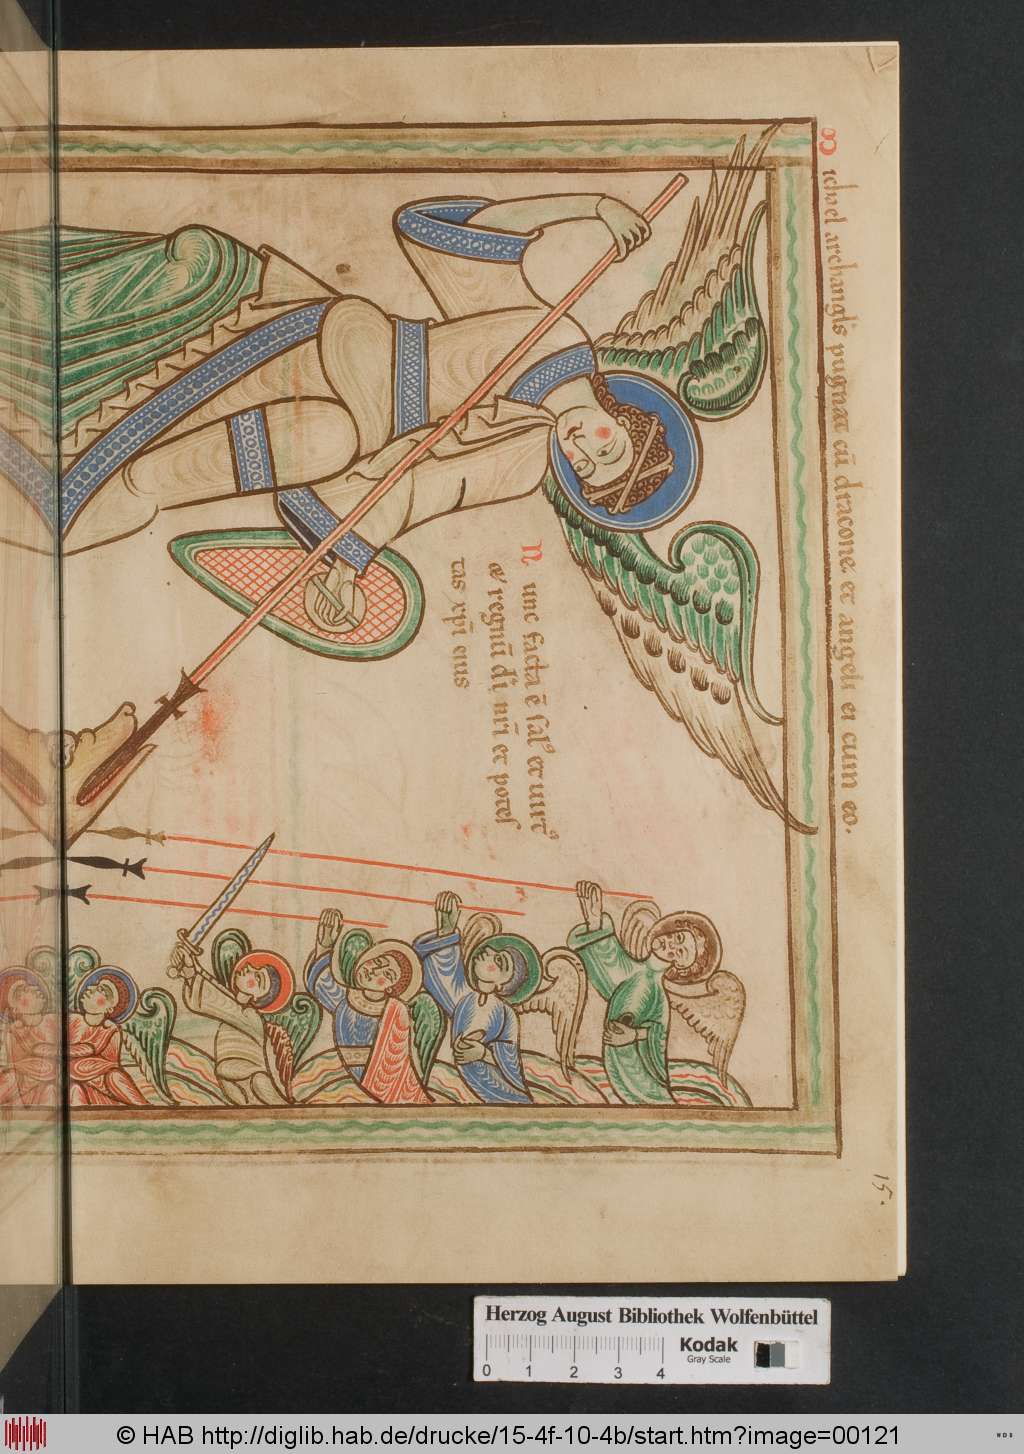 Michael archangl̄s pugnat cū dracone et angeli ei cum eo.
Nunc facta ē sal' et uirt'
& regnū dī nr̄i et potes
tas xp̄i eius
15.
Herzog August Bibliothek Wolfenbüttel
Kodak
Gray Scale
0 1 2 3 4
© HAB http://diglib.hab.de/drucke/15-4f-10-4b/start.htm?image=00121
WDB